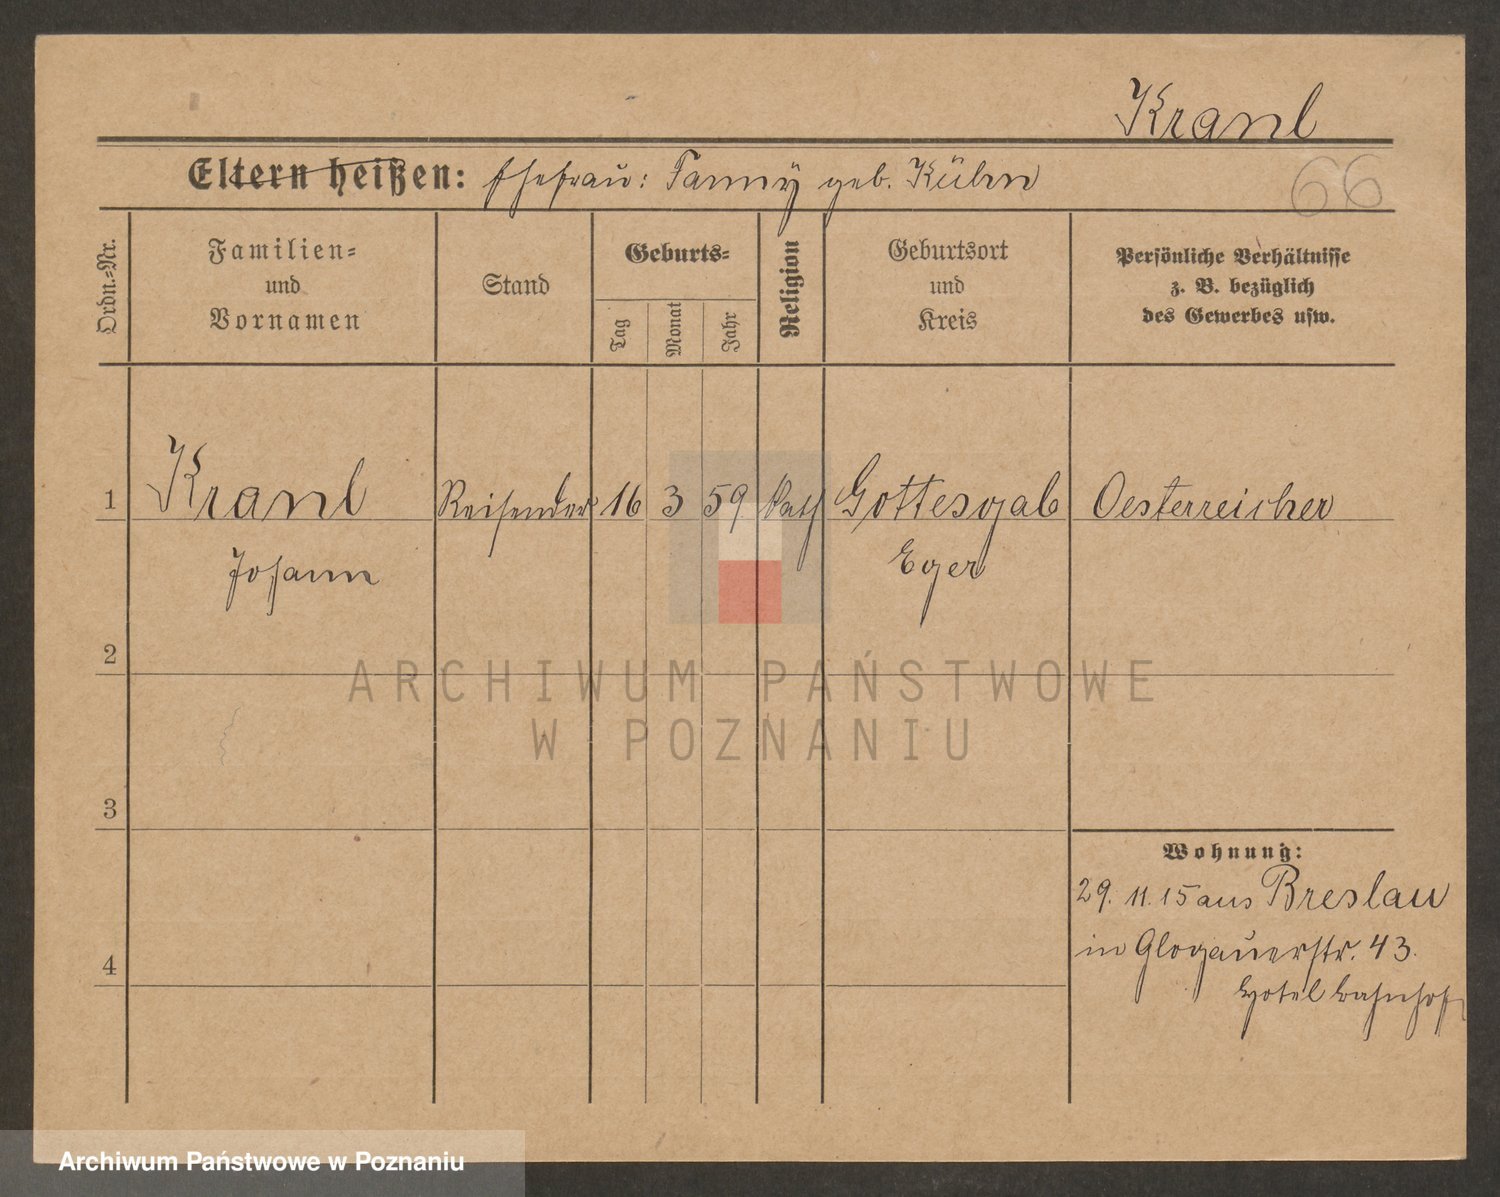 Kranl
66
Eltern heißen: Ehefrau: Fanny geb. Kühn
Ordn.=Nr.
Familien=
und
Vornamen
Stand
Geburts=
Tag
Monat
Jahr
Religion
Geburtsort
und
Kreis
Persönliche Verhältnisse
z. B. bezüglich
des Gewerbes usw.
1 Kranl Reisender 16 3 59 kath Gottesgab Oesterreicher
Johann Eger
2
3
4
Wohnung:
29. 11. 15 aus Breslau
in Glogauerstr. 43.
Hotel Bahnhof
ARCHIWUM PAŃSTWOWE
W POZNANIU
Archiwum Państwowe w Poznaniu